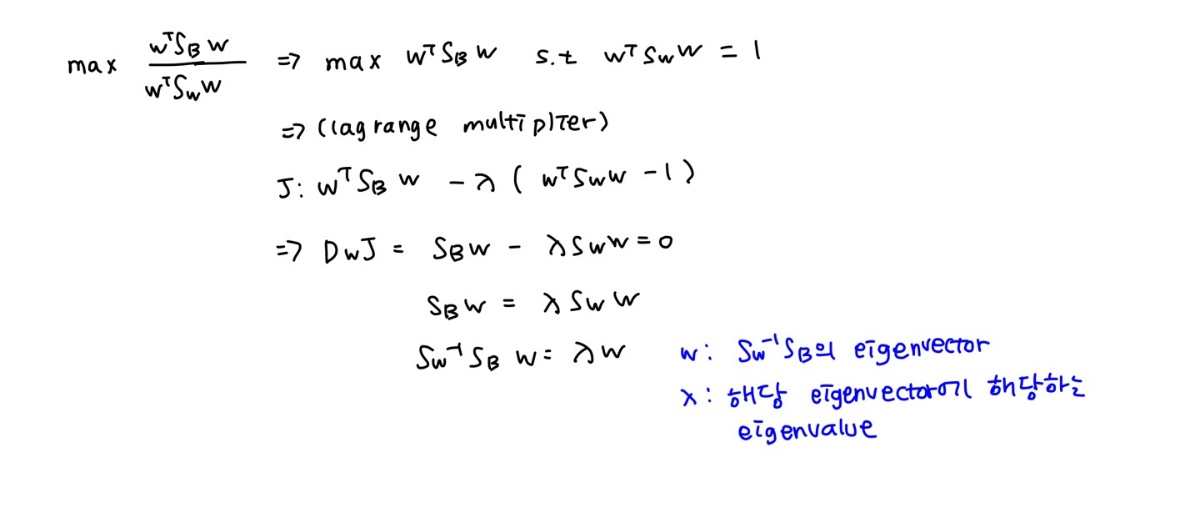 max wᵀS_B w / wᵀS_w w => max wᵀS_B w s.t wᵀS_w w = 1
=> (lagrange multiplier)
J: wᵀS_B w - λ ( wᵀS_w w - 1 )
=> D_w J = S_B w - λ S_w w = 0
S_B w = λ S_w w
S_w⁻¹ S_B w = λ w
w: S_w⁻¹ S_B의 eigenvector
λ: 해당 eigenvector에 해당하는
eigenvalue